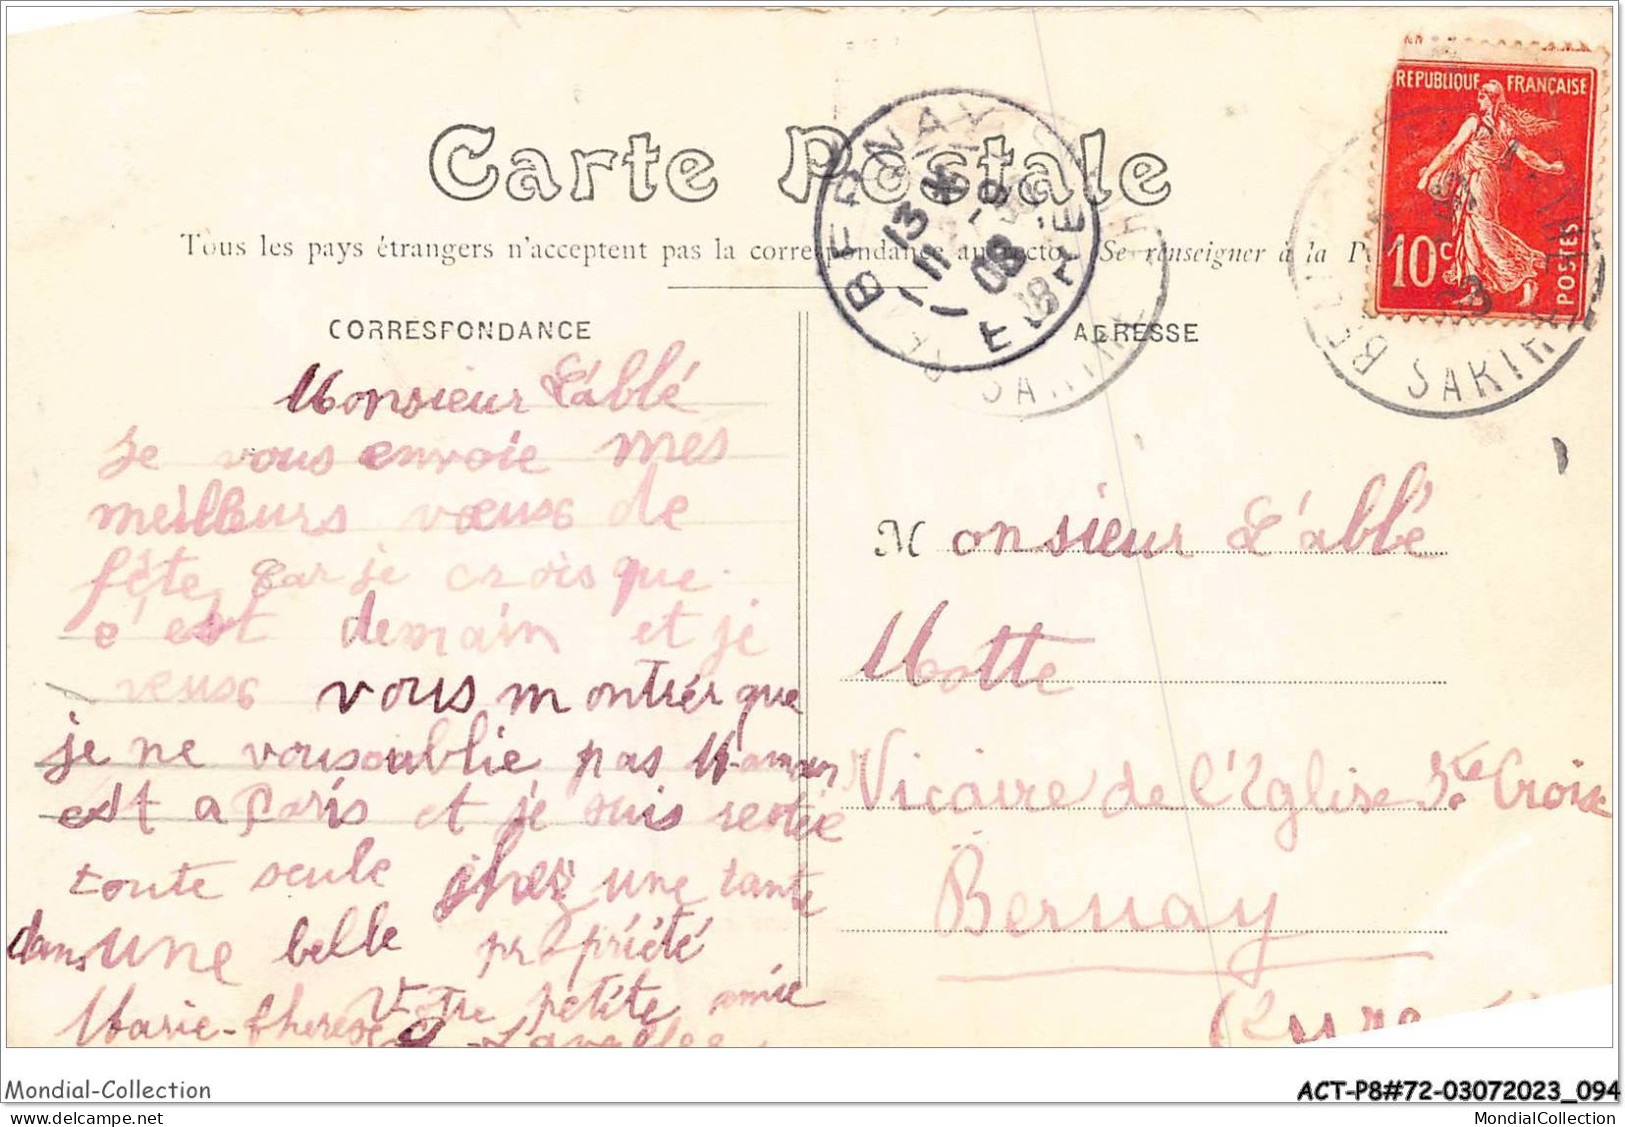 Carte Postale
Tous les pays étrangers n'acceptent pas la correspondance au recto. Se renseigner à la P
REPUBLIQUE FRANÇAISE
10 c
POSTES
BERNAY
13
11 - 8
08
EURE
SARTHE
SARTHE
CORRESPONDANCE
Monsieur L'ablé
Je vous envoie mes
meilleurs vœux de
fête, car je crois que
c'est demain et je
veux vous montrér que
je ne vous oublie pas Maman
est a Paris et je suis restée
toute seule chez une tante
dans une belle propriété
Votre petite amie
Marie-therese
ADRESSE
Monsieur L'abbé
Motte
Vicaire de l'Eglise Ste Croix
Bernay
(Eure
Mondial-Collection
ACT-P8#72-03072023_094
MondialCollection